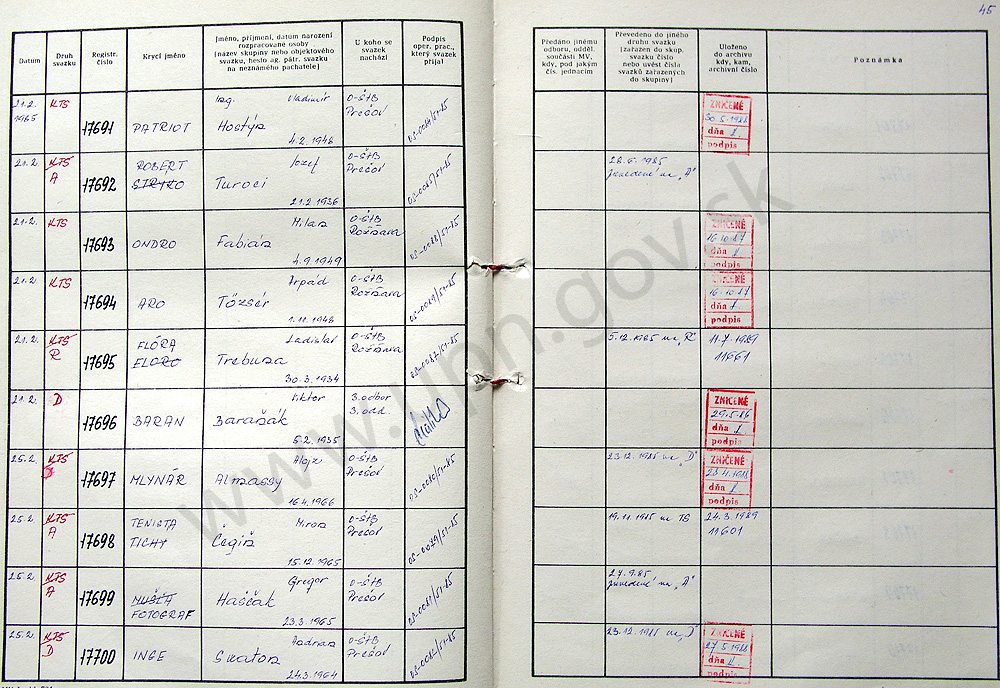 45
Datum
Druh svazku
Registr. číslo
Krycí jméno
Jméno, příjmení, datum narození rozpracované osoby (název skupiny nebo objektového svazku, heslo ag. pátr. svazku na neznámého pachatele)
U koho se svazek nachází
Podpis oper. prac., který svazek přijal
Předáno jinému odboru, odděl. součásti MV, kdy, pod jakým čís. jednacím
Převedeno do jiného druhu svazku (zařazen do skup. svazku číslo nebo uvést čísla svazků zařazených do skupiny)
Uloženo do archivu kdy, kam, archivní číslo
Poznámka
21.2. 1985 KTS 17691 PATRIOT Ing. Vladimír Hostýn 4.2.1948 O-ŠtB Prešov
ZNIČENÉ 30.5.1988 dňa podpis
21.2. KTS A 17692 ROBERT Jozef Turoci 21.2.1936 O-ŠtB Prešov
28.5.1985 zavedené na „A"
21.2. KTS 17693 ONDRO Milan Fabián 4.9.1949 O-ŠtB Rožňava
ZNIČENÉ 16.10.87 dňa podpis
21.2. KTS 17694 ARO Arpád Tőzsér 1.11.1948 O-ŠtB Rožňava
ZNIČENÉ 16.10.87 dňa podpis
21.2. KTS R 17695 FLÓRA Ladislav Trebuňa 30.3.1934 O-ŠtB Rožňava
5.12.1985 na „R" 11.7.1989 11661
21.2. D 17696 BARAN Viktor Baraňák 5.2.1935 3.odbor 3.odd.
ZNIČENÉ 29.5.86 dňa podpis
25.2. KTS D 17697 MLYNÁR Alojz Almassy 16.4.1966 O-ŠtB Prešov
23.12.1985 na „D" ZNIČENÉ 28.4.1988 dňa podpis
25.2. KTS A 17698 TENISTA TICHÝ Miron Čegiň 15.12.1965 O-ŠtB Prešov
19.11.1985 na TS 24.3.1989 11601
25.2. KTS A 17699 MUŠĽA FOTOGRAF Gregor Haščák 23.3.1965 O-ŠtB Prešov
27.9.85 zavedené na „A"
25.2. KTS D 17700 INGE 24.3.1964 O-ŠtB Prešov
23.12.1985 na „D" ZNIČENÉ 27.5.1988 dňa podpis
www.upn.gov.sk